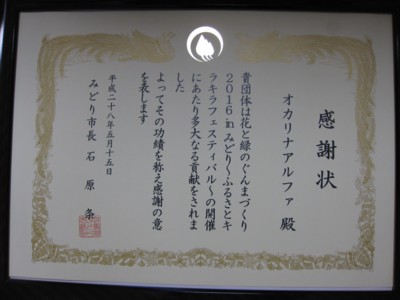 感謝状
オカリナアルファ 殿
貴団体は花と緑のぐんまづくり
2016inみどり〜ふるさとキ
ラキラフェスティバル〜の開催
にあたり多大なる貢献をされま
した
よってその功績を称え感謝の意
を表します
平成二十八年五月十五日
みどり市長 石原 条